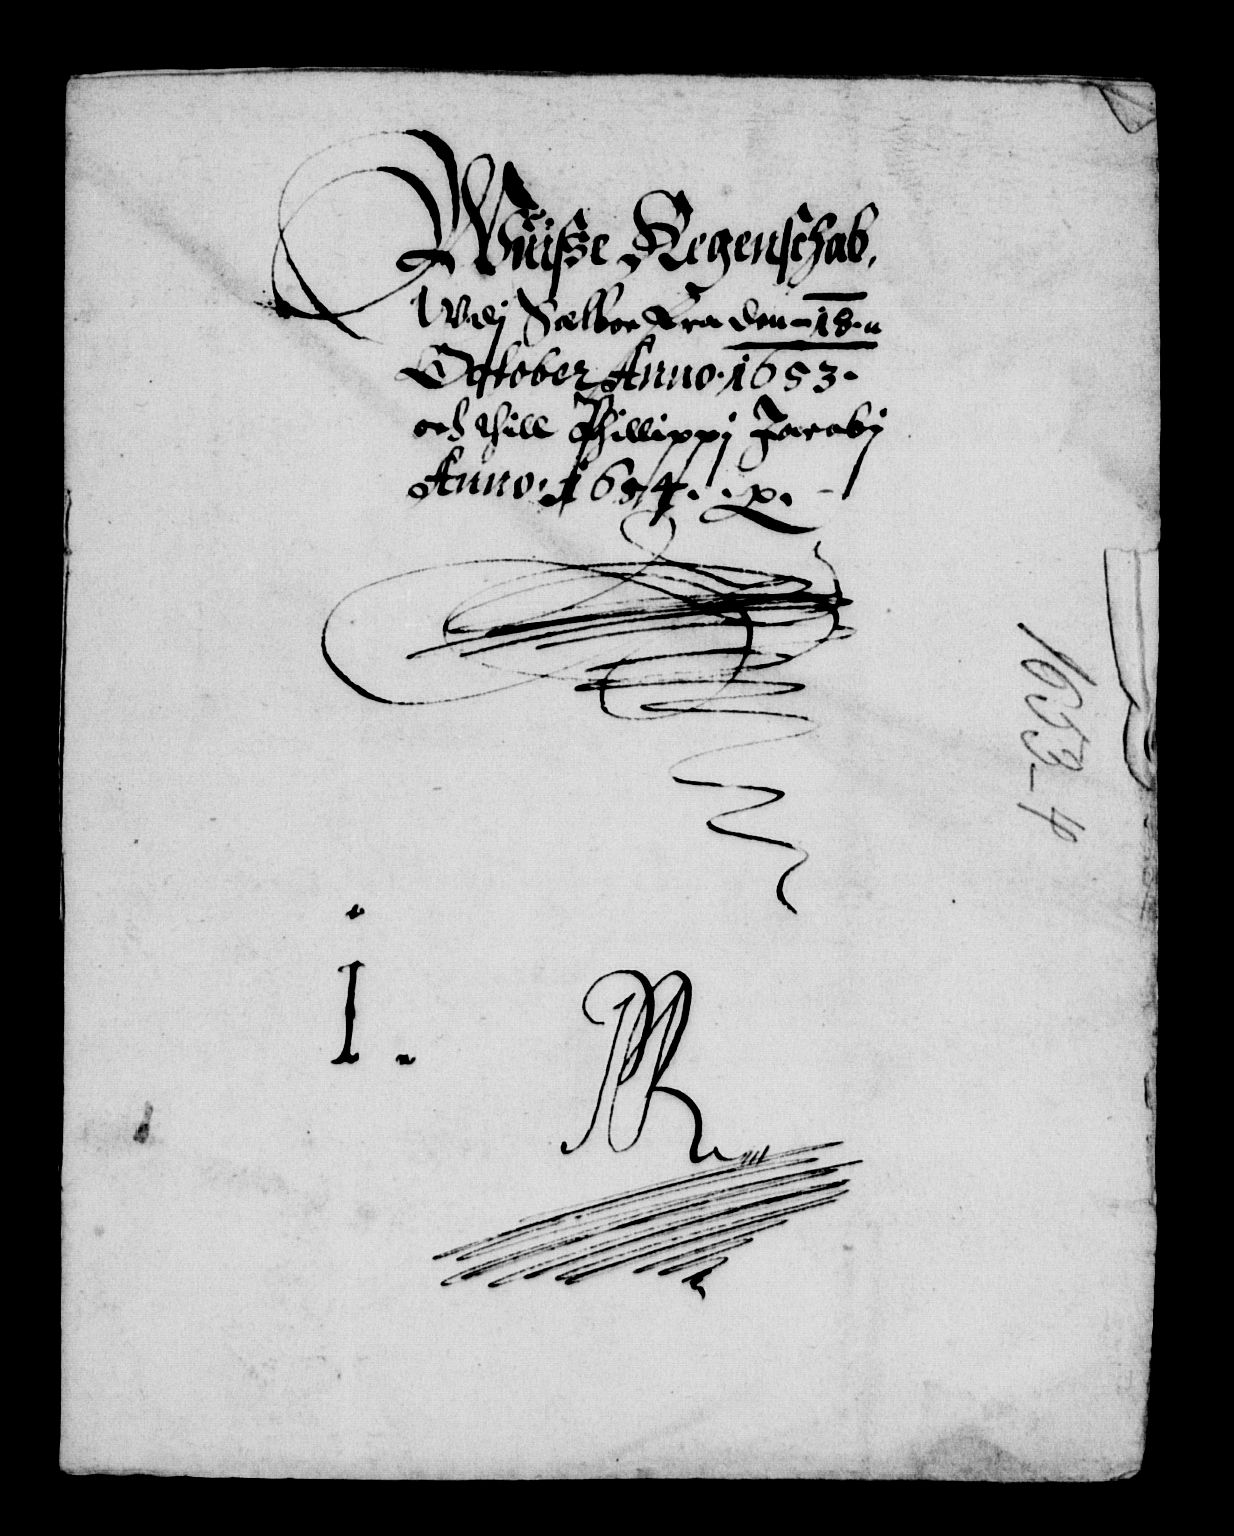 Wuisze Regenschab,
Wdj Sælboe Fra den 18.
October Anno. 1653.
och thill Phillippj Jacobj
Anno. 1654.
1653-4
I.